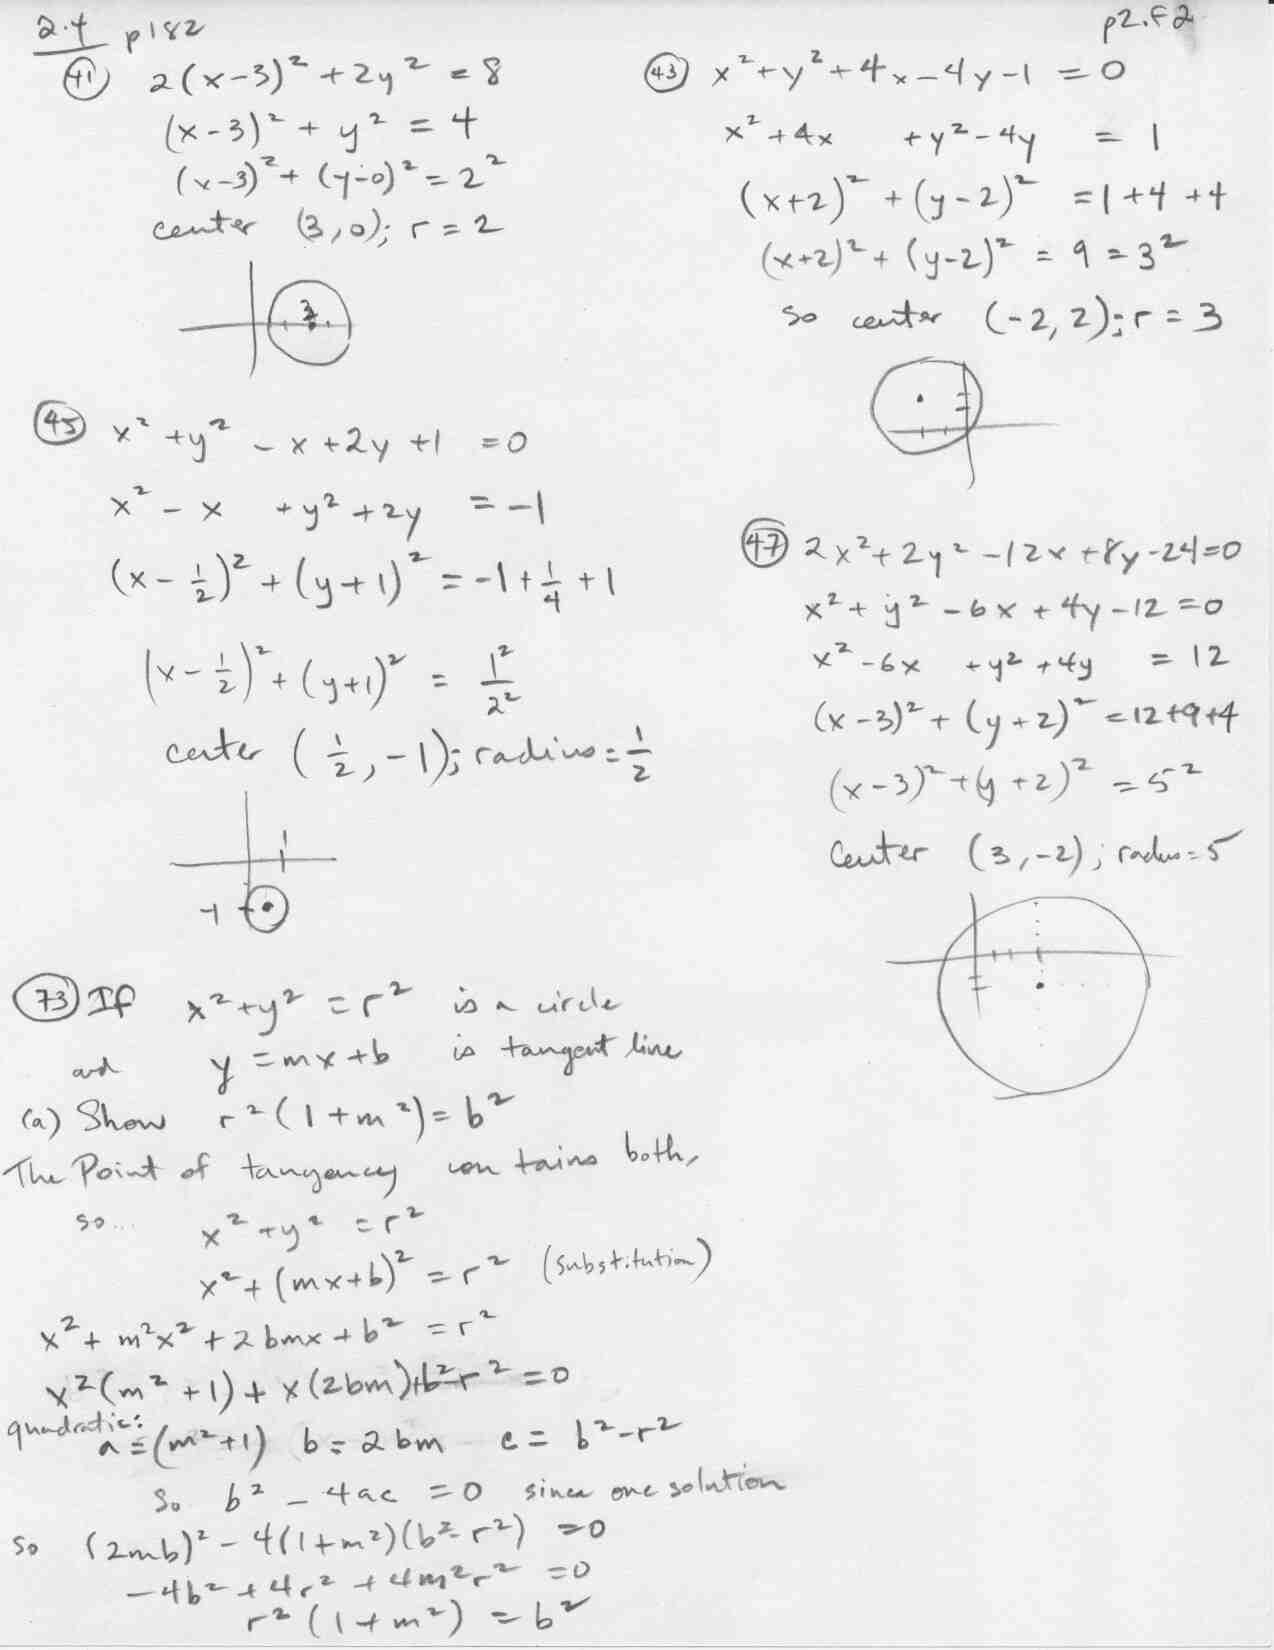 2.4 p182
p2.F2
(41) 2(x-3)² + 2y² = 8
(x-3)² + y² = 4
(x-3)² + (y-0)² = 2²
center (3,0); r = 2
3
(43) x² + y² + 4x - 4y - 1 = 0
x² + 4x + y² - 4y = 1
(x+2)² + (y-2)² = 1+4+4
(x+2)² + (y-2)² = 9 = 3²
so center (-2, 2); r = 3
(45) x² + y² - x + 2y + 1 = 0
x² - x + y² + 2y = -1
(x - 1/2)² + (y+1)² = -1 + 1/4 + 1
(x - 1/2)² + (y+1)² = 1²/2²
center (1/2, -1); radius = 1/2
1
-1
(47) 2x² + 2y² - 12x + 8y - 24 = 0
x² + y² - 6x + 4y - 12 = 0
x² - 6x + y² + 4y = 12
(x-3)² + (y+2)² = 12+9+4
(x-3)² + (y+2)² = 5²
Center (3, -2); radius = 5
(73) If x² + y² = r² is a circle
and y = mx + b is tangent line
(a) Show r²(1 + m²) = b²
The Point of tangency contains both,
so... x² + y² = r²
x² + (mx+b)² = r² (substitution)
x² + m²x² + 2bmx + b² = r²
x²(m² + 1) + x(2bm) + b² - r² = 0
quadratic:
a = (m²+1) b = 2bm c = b² - r²
So b² - 4ac = 0 since one solution
so (2mb)² - 4(1+m²)(b² - r²) = 0
-4b² + 4r² + 4m²r² = 0
r²(1 + m²) = b²